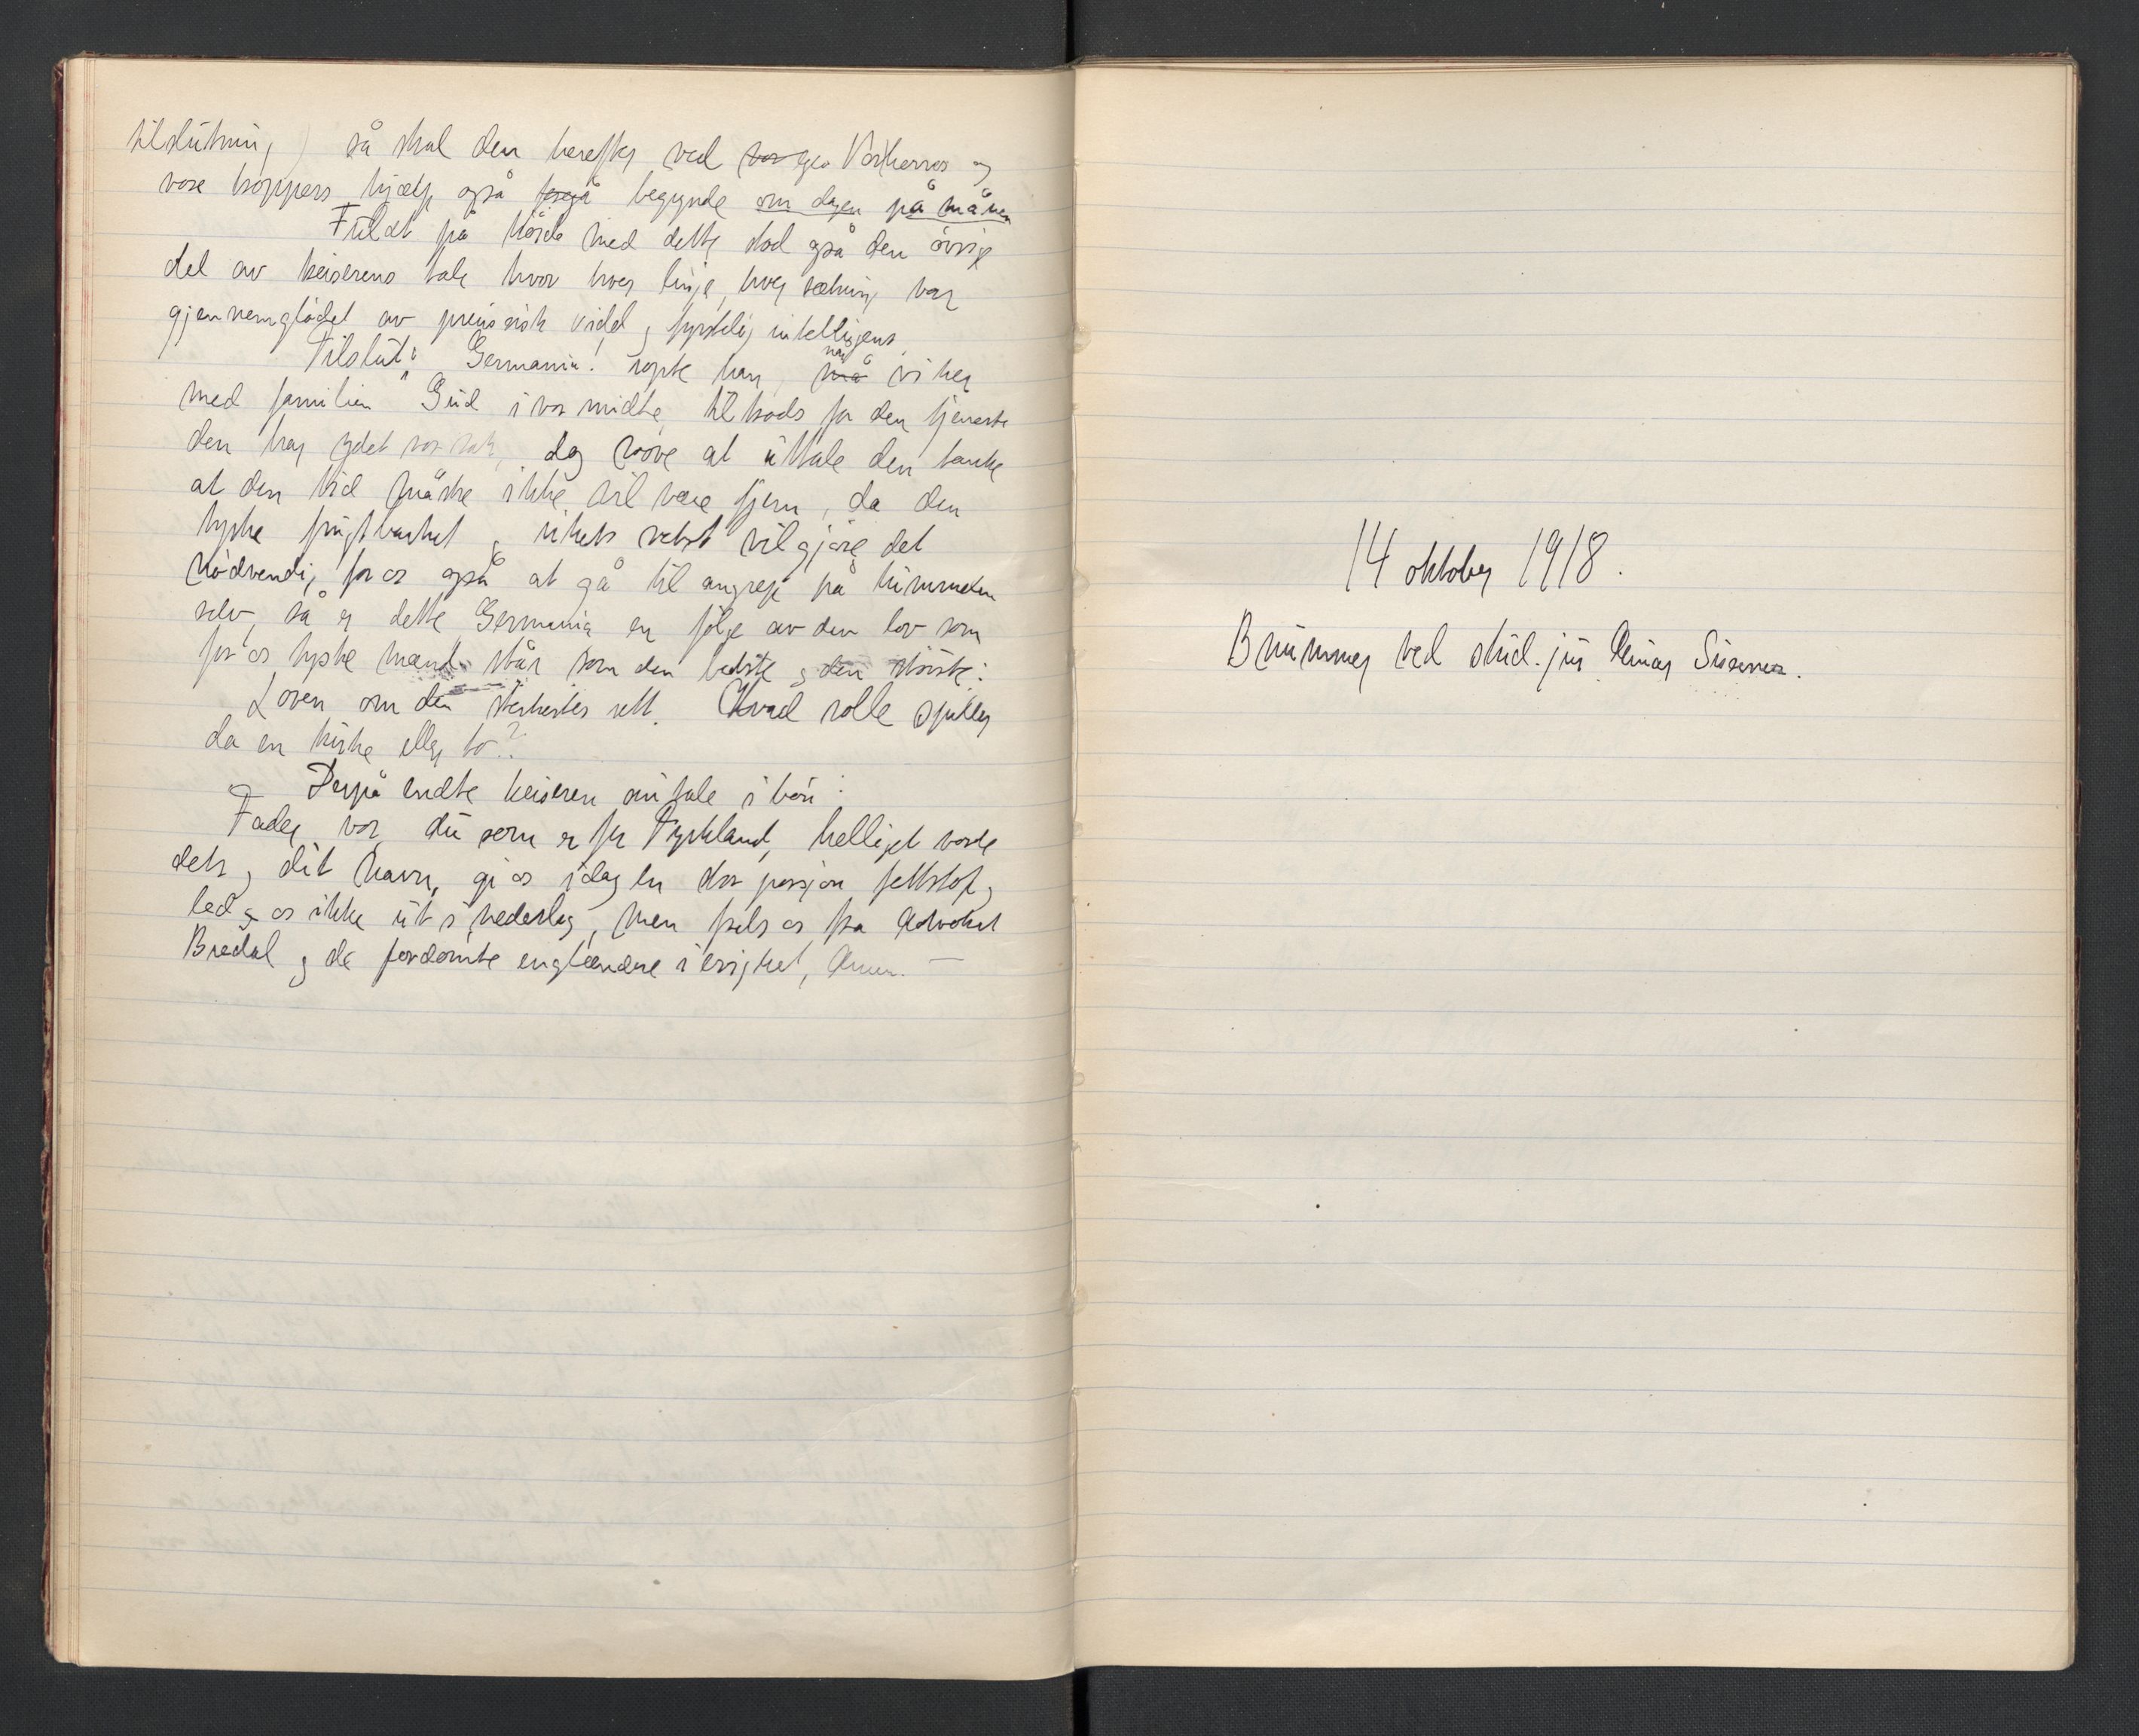 tilslutning) så skal den herefter ved vor Vorherres og
vore troppers hjælp også foregå begynde om dagen på månen
Fuldt på høide med dette stod også den övrige
del av keiserens tale hvor hver linje, hver sætning var
gjennemglödet av preussisk vidd og fyrstelig intelligens.
Tilslut: "Germania! ropte han, når må vi her
med familien Gud i vor midte, til trods for den tjeneste
den har ydet vor sak, dog vove at uttale den tanke
at den tid måske ikke vil være fjern, da den
tyske frugtbarhet og rikets vekst vil gjöre det
nödvendig for os også at gå til angrep på himmelen
selv, så er dette Germania en fölge av den lov som
for os tyske mænd står som den bedste og den störste:
Loven om den sterkestes rett. Hvad rolle spiller
da en kirke eller to?
Derpå endte keiseren sin tale i bön:
Fader vor, du som er for Tyskland, helliget vorde
dets og dit navn, gi os idag en stor porsjon fettstof og
led os ikke ut i nederlag, men frels os fra Advokat
Bredal og de fordömte englændere i evighet, Amen. —
14 oktober 1918.
Brummer ved stud. jur. Einar